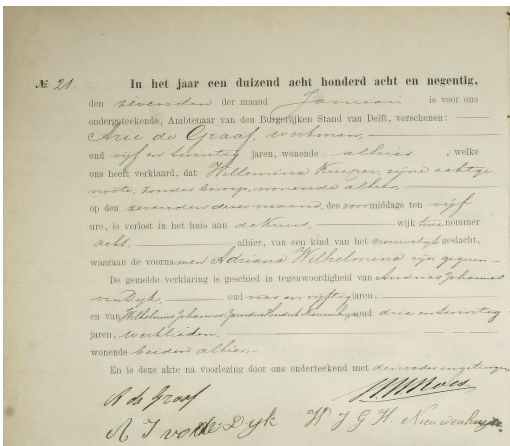 № 21. In het jaar een duizend acht honderd acht en negentig,
den zevenden der maand Januari is voor ons
ondergeteekende, Ambtenaar van den Burgerlijken Stand van Delft, verschenen:
Arie de Graaf, werkman,
oud vijf en twintig jaren, wonende alhier, welke
ons heeft verklaard, dat Willemina Kuiper, zijne echtge
noote, zonder beroep, wonende alhier,
op den zevenden dezer maand, des voormiddags ten vijf
ure, is verlost in het huis aan wijk nommer
acht, alhier, van een kind van het vrouwelijk geslacht,
waaraan de voornamen Adriana Wilhelmina zijn gegeven
De gemelde verklaring is geschied in tegenwoordigheid van Andries Johannes
van Dijk, oud en vijftig jaren,
en van Wilhelmus Johannes oud drie en twintig
jaren, werklieden,
wonende beiden alhier.
En is deze akte na voorlezing door ons onderteekend met
A de Graaf
A J van Dijk W J G H. Nieuwenhuijse